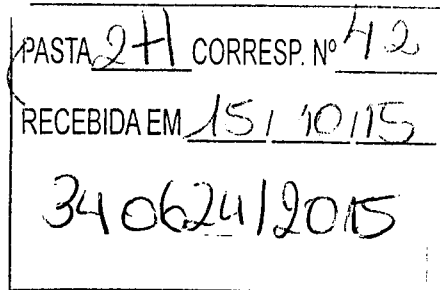 PASTA 2H CORRESP. Nº 42
RECEBIDA EM 15/10/15
340624/2015